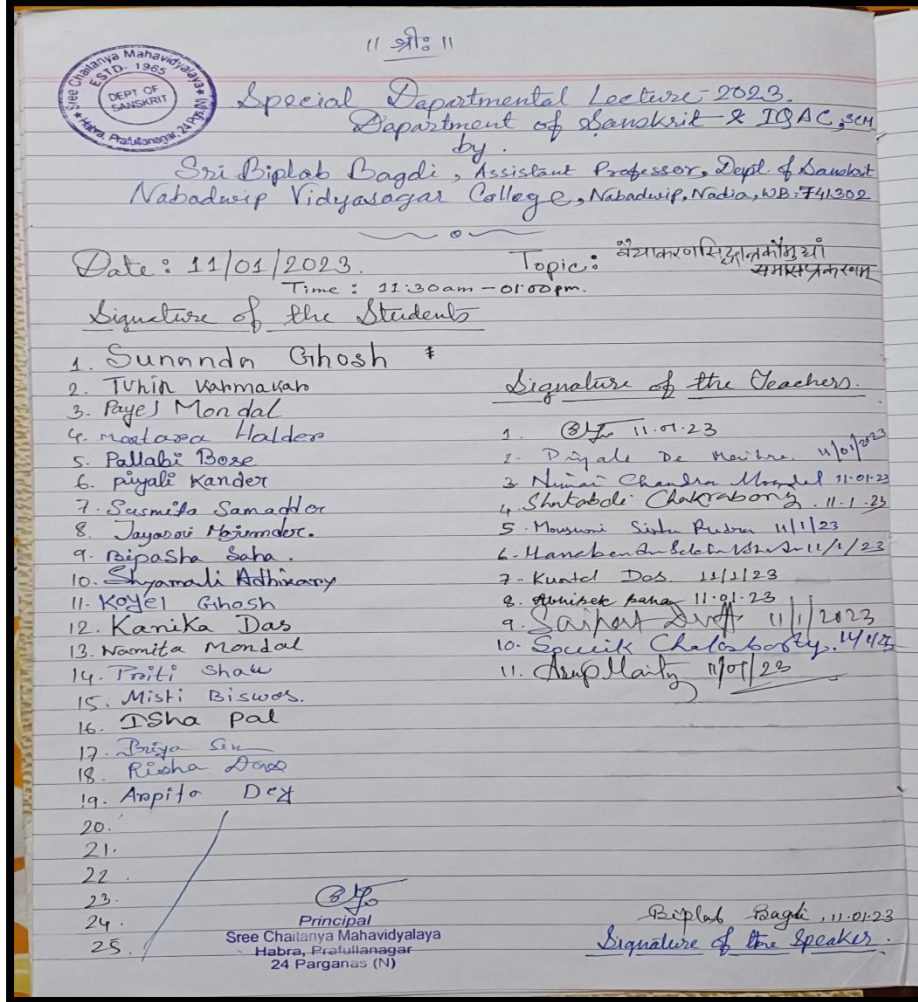 ॥ श्रीः ॥
Sree Chaitanya Mahavidyalaya
ESTD- 1965
DEPT OF SANSKRIT
Habra, Prafullanagar, 24 Pgs (N)
Special Dapartmental Lecture-2023.
Dapartment of Sanskrit & IQAC, SCM
by.
Sri Biplab Bagdi, Assistant Professor, Dept. of Sanskrit
Nabadwip Vidyasagar College, Nabadwip, Nadia, WB:741302
Date: 11/01/2023.
Topic: वैयाकरणसिद्धान्तकौमुद्यां
समासप्रकरणम्
Time: 11:30am - 01:00pm.
Signature of the Students
1. Sunanda Ghosh
2. Tuhin Karmakar
3. Payel Mondal
4. Halder
5. Pallabi Bose
6. piyali Kander
7. Susmita Samaddar
8. Jayasri Mojumder.
9. Bipasha Saha.
10. Shyamali Adhikary
11. Koyel Ghosh
12. Kanika Das
13. Namita Mondal
14. Priti Shaw
15. Misti Biswas.
16. Isha Pal
17. Priya Sen
18. Risha Das
19. Arpita Dey
20.
21.
22.
23.
24.
25.
Signature of the Teachers.
1. 11.01.23
2. De 11/01/2023
3. Nimai Chandra Mondal 11.01.23
4. Shatabdi Chakraborty. 11.1.23
5. Mousumi Sinha 11/1/23
6. 11/1/23
7. Kuntal Das 11/1/23
8. Abhisek 11.01.23
9. 11/1/2023
10. Souvik Chakraborty.
11. Arup Maity 11/01/23
Principal
Sree Chaitanya Mahavidyalaya
Habra, Prafullanagar
24 Parganas (N)
Biplab Bagdi, 11.01.23
Signature of the Speaker.